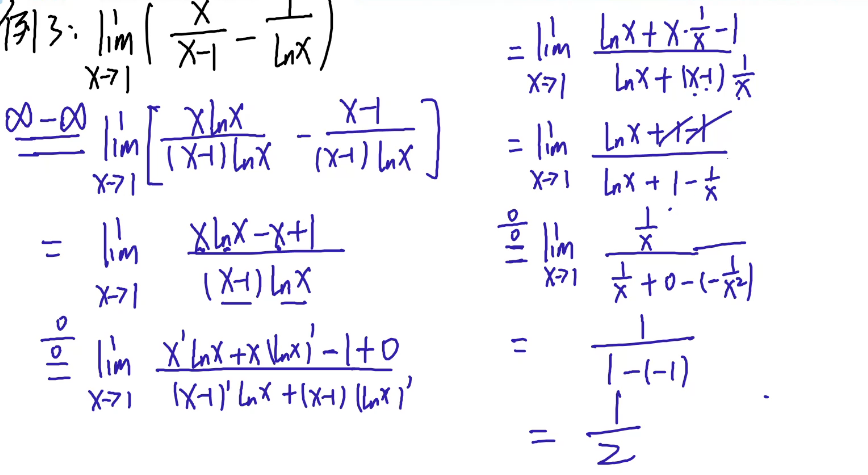 例3: lim x→1 ( x/(x-1) - 1/lnx )
∞-∞ = lim x→1 [ xlnx/((x-1)lnx) - (x-1)/((x-1)lnx) ]
= lim x→1 (xlnx-x+1)/((x-1)lnx)
0/0 = lim x→1 (x'lnx+x(lnx)'-1+0)/((x-1)'lnx+(x-1)(lnx)')
= lim x→1 (lnx+x·1/x-1)/(lnx+(x-1)1/x)
= lim x→1 (lnx+1-1)/(lnx+1-1/x)
0/0 = lim x→1 (1/x)/(1/x+0-(-1/x²))
= 1/(1-(-1))
= 1/2